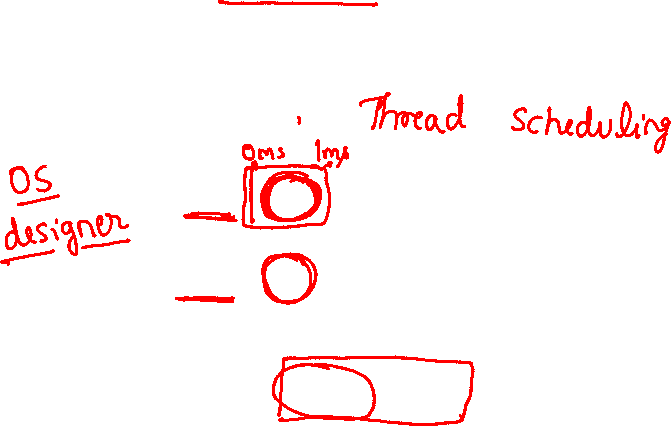 Thread Scheduling
0ms 1ms
OS
designer